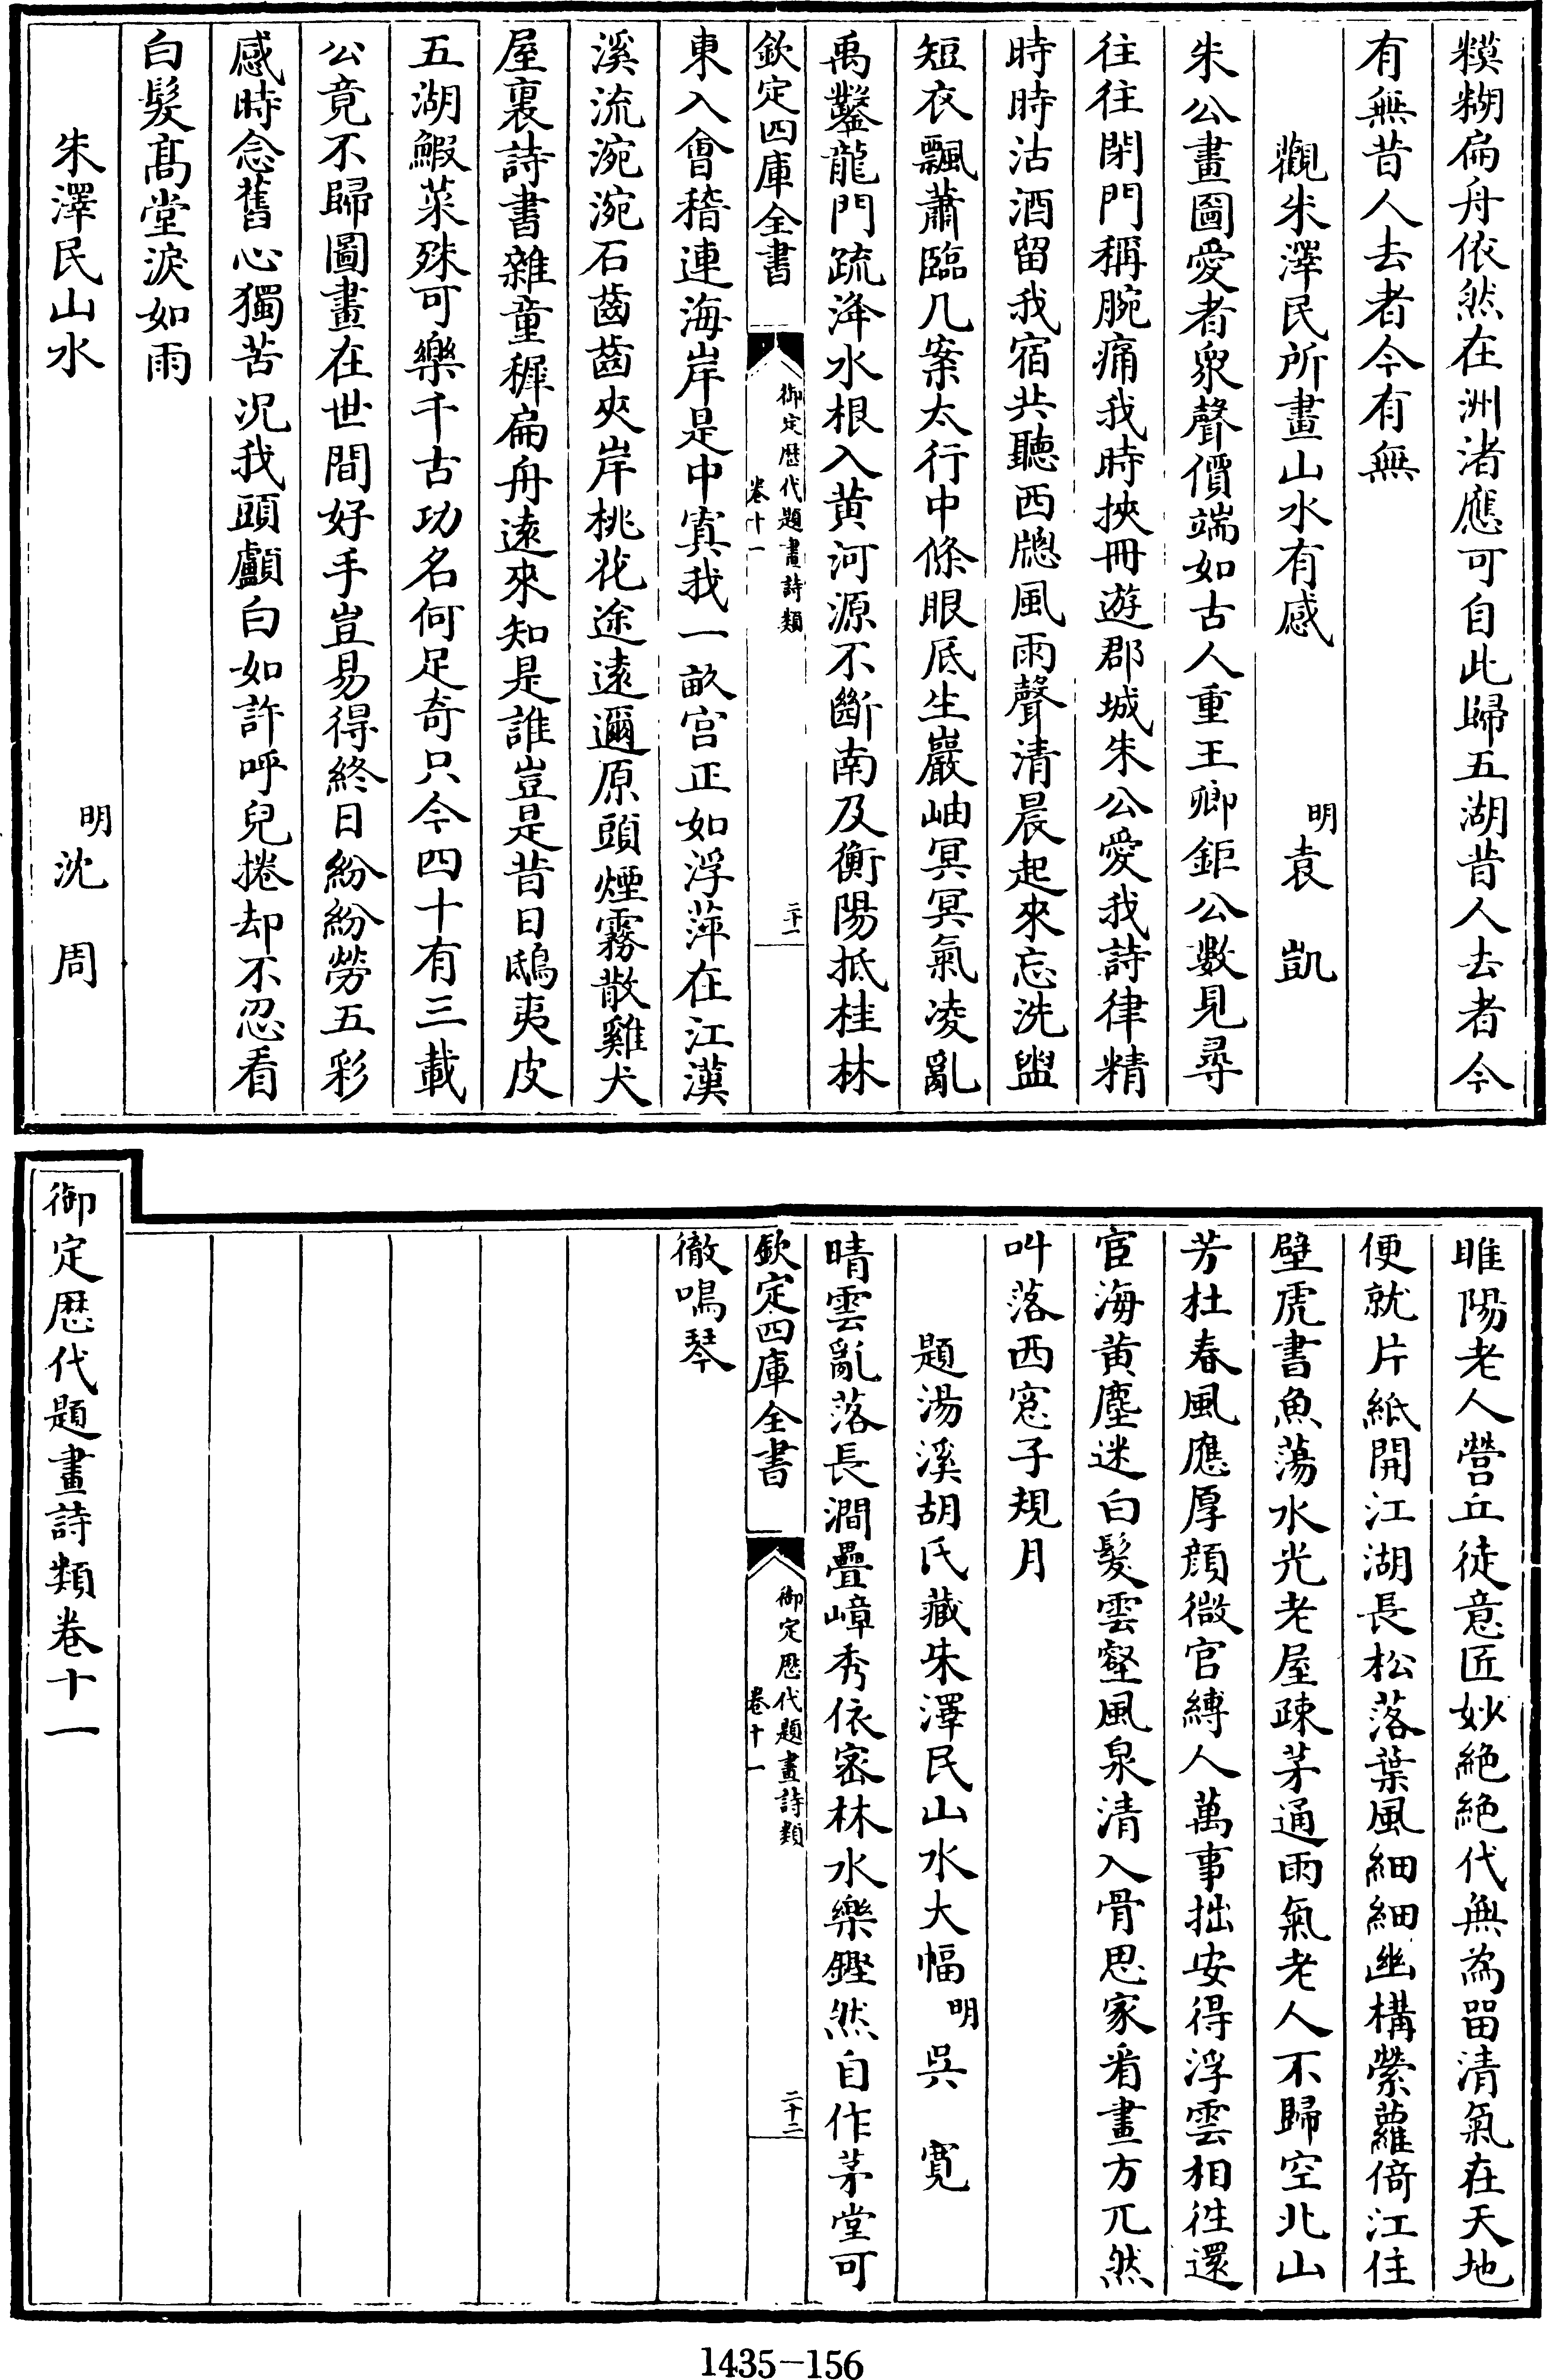 糢糊扁舟依然在洲渚應可自此歸五湖昔人去者今
有無昔人去者今有無
觀朱澤民所畫山水有感 明 袁凱
朱公畫圖愛者衆聲價端如古人重王卿鉅公數見尋
往往閉門稱腕痛我時挾冊遊郡城朱公愛我詩律精
時時沽酒留我宿共聽西牕風雨聲清晨起來忘洗盥
短衣飄蕭臨几案太行中條眼底生巖岫冥冥氣凌亂
禹鑿龍門疏洚水根入黃河源不斷南及衡陽抵桂林
欽定四庫全書 御定歷代題畫詩類 卷十一 二十一
東入會稽連海岸是中寘我一畝宮正如浮萍在江漢
溪流涴涴石齒齒夾岸桃花途遠邇原頭煙霧散雞犬
屋裏詩書雜童穉扁舟遠來知是誰豈是昔日鴟夷皮
五湖鰕菜殊可樂千古功名何足奇只今四十有三載
公竟不歸圖畫在世間好手豈易得終日紛紛勞五彩
感時念舊心獨苦况我頭顱白如許呼兒捲却不忍看
白髮髙堂淚如雨
朱澤民山水 明 沈周
睢陽老人營丘徒意匠妙絶絶代無為留清氣在天地
便就片紙開江湖長松落葉風細細幽構縈蘿倚江住
壁虎書魚蕩水光老屋疎茅通雨氣老人不歸空北山
芳杜春風應厚顔微官縛人萬事拙安得浮雲相徃還
宦海黄塵迷白髮雲壑風泉清入骨思家看畫方兀然
叫落西窻子規月
題湯溪胡氏藏朱澤民山水大幅 明 吳寬
晴雲亂落長澗疊嶂秀依密林水樂鏗然自作茅堂可
欽定四庫全書 御定歷代題畫詩類 卷十一 二十二
徹鳴琴
御定歷代題畫詩類卷十一
1435-156